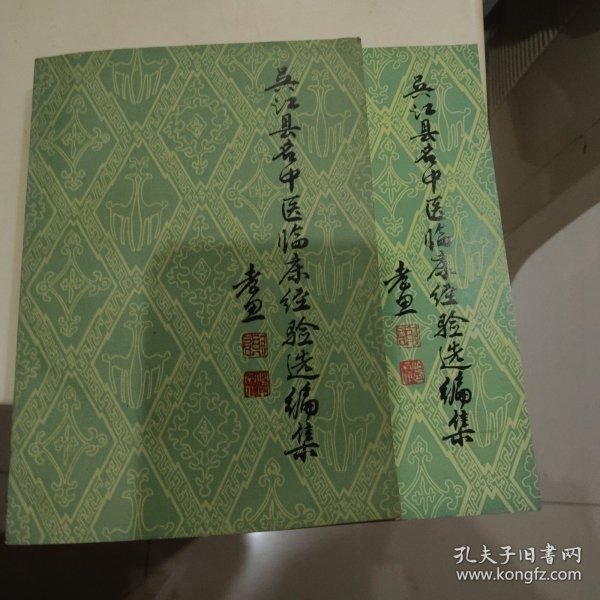 吴江县名中医临床经验选编集
孝思
吴江县名中医临床经验选编集
孝思
孔夫子旧书网
www.kongfz.com